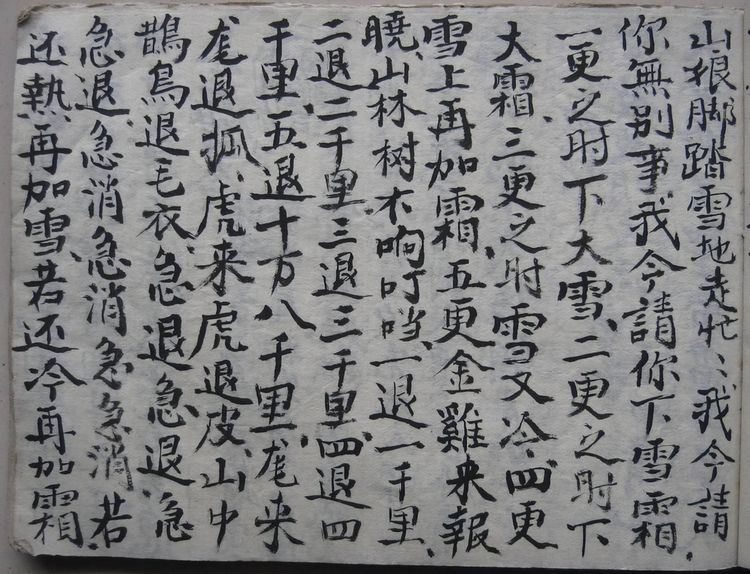 山狼脚踏雪地走忙〻我今請
你無别事我今請你下雪霜
一更之时下大雪、二更之时下
大霜、三更之时雪又冷、四更
雪上再加霜、五更金雞来報
曉、山林树木响叮噹、一退一千里、
二退二千里、三退三千里、四退四
千里、五退十万八千里、龙来
龙退孤、虎来虎退皮、山中
鵲鳥退毛衣、急退急退、急
急退、急消急消急急消、若
还熱再加雪、若还冷再加霜、